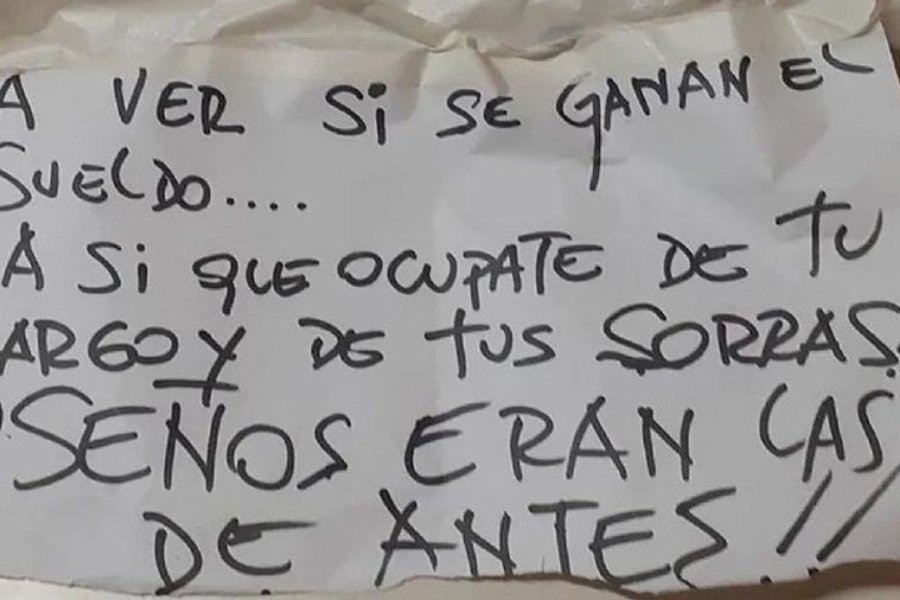 A VER Si SE GANAN EL
SUELDO....
A Si QUE OCUPATE DE TU
ARGO Y DE TUS SORRAS
SEÑOS ERAN LAS
DE ANTES!!